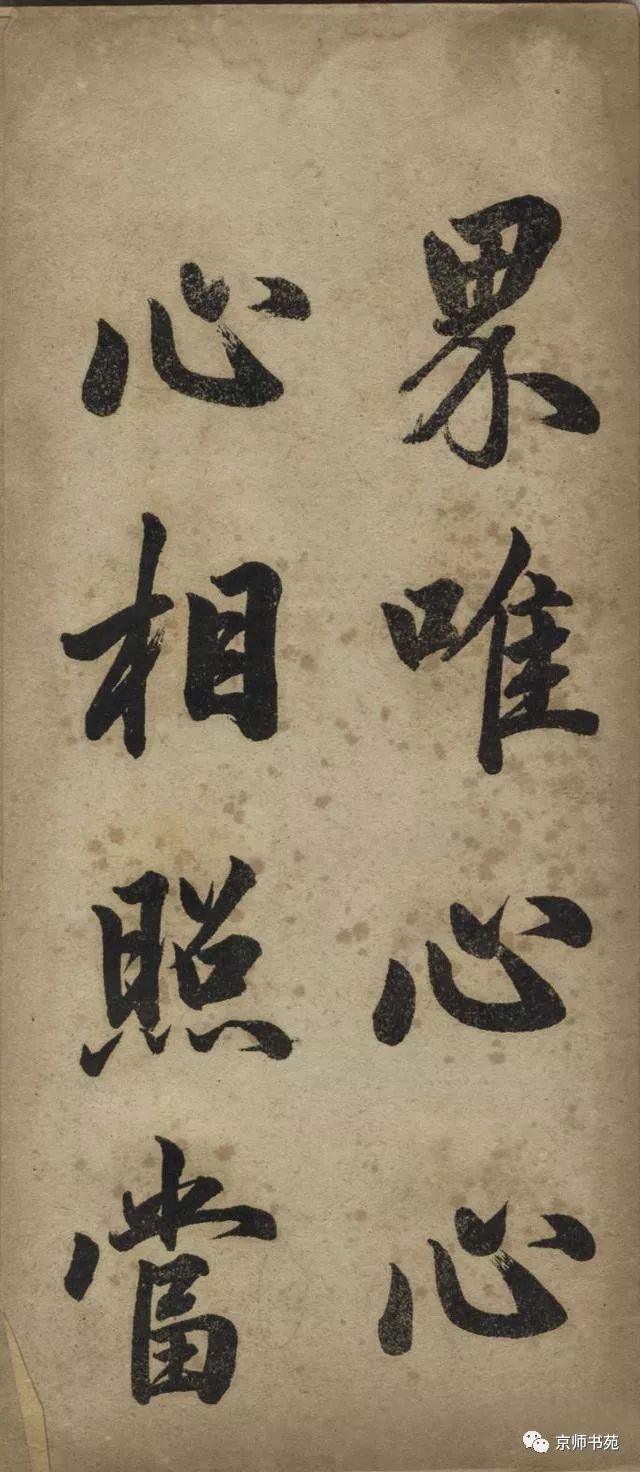 界唯心心
心相照當
京师书苑